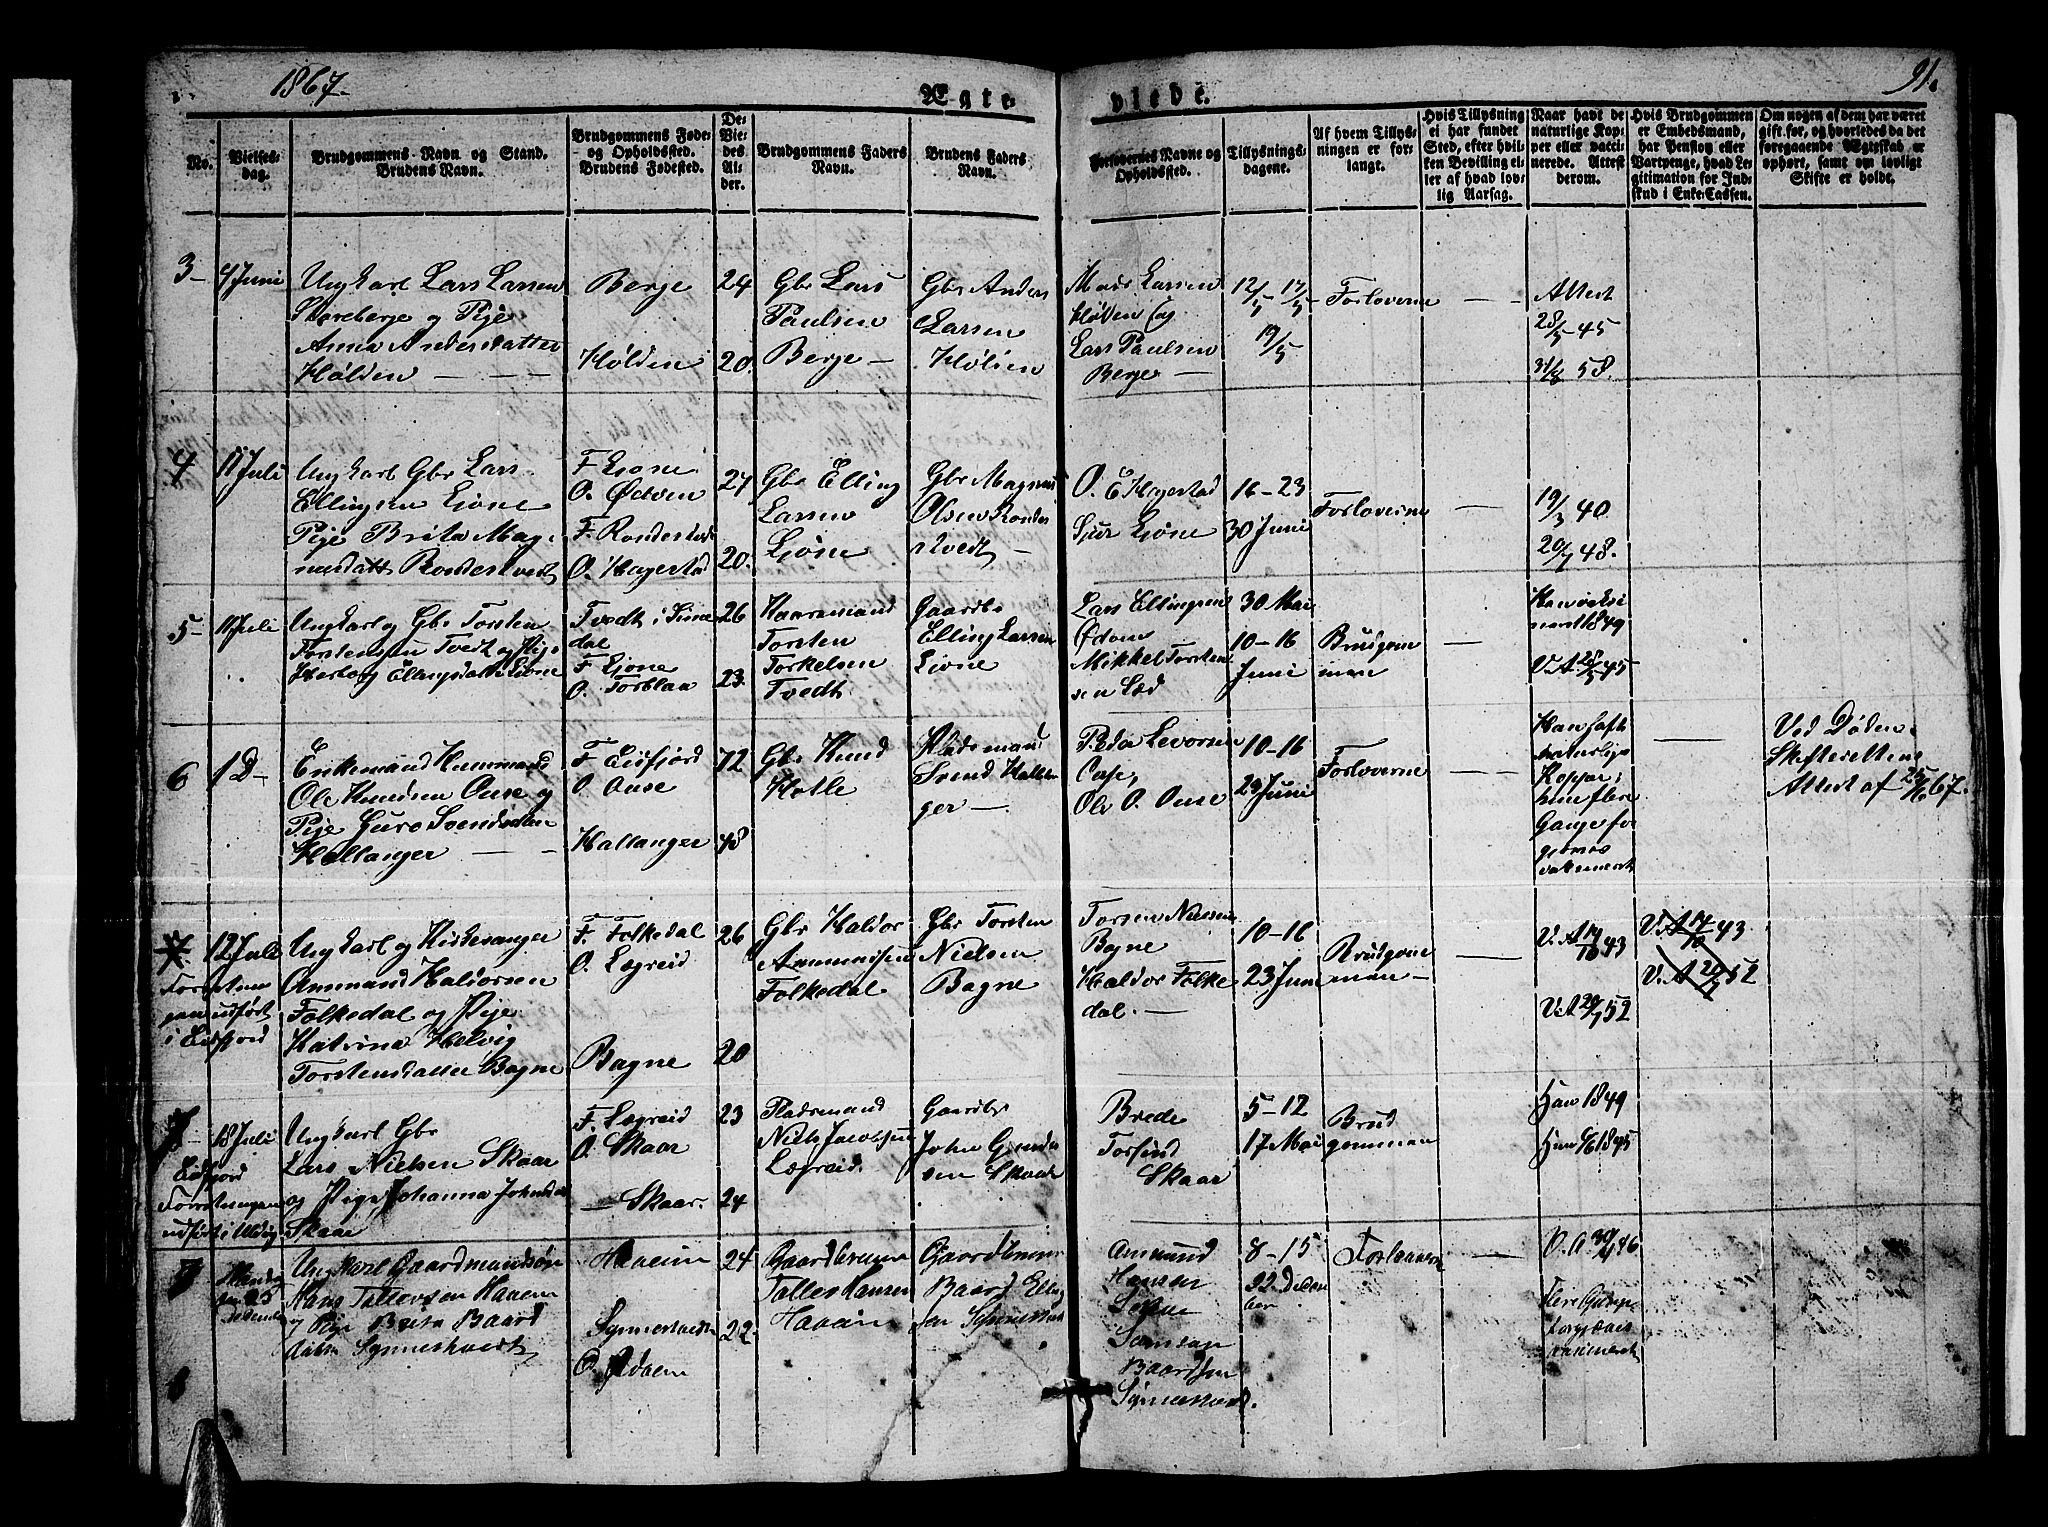 1867.
Ægte-
viede.
91.
No.
Vielses-
dag.
Brudgommens Navn og Stand.
Brudens Navn.
Brudgommens Føde-
og Opholdssted.
Brudens Fødested.
De
Vie-
des
Al-
der.
Brudgommens Faders
Navn.
Brudens Faders
Navn.
Forlovernes Navne og
Opholdssted.
Tillysnings-
dagene.
Af hvem Tillys-
ningen er for-
langt.
Hvis Tillysning
ei har fundet
Sted, efter hvil-
ken Bevilling el-
ler af hvad lov-
lig Aarsag.
Naar havt de
naturlige Kop-
per eller vacci-
nerede. Attest
derom.
Hvis Brudgommen
er Embedsmand,
har Pension eller
Vartpenge, hvad Le-
gitimation for Ind-
skud i Enke-Cassen.
Om nogen af dem har været
gift før, og hvorledes da det
foregaaende Ægteskab er
ophørt, samt om lovligt
Skifte er holdt.
3-
4 Juni
Ungkarl Lars Larsen
Storeberge og Pige
Anna Andersdatter
Hølden
Berge
Hølden
24
20
Gbr Lars
Paulsen
Berge
Gbr Anders
Larsen
Hølden
Mads Larsen
Hølden og
Lars Paulsen
Berge
12/5 17/5
19/5
Forloverne
Attest
28/5 45
31/8 58.
4
11 Juli
Ungkarl Gbr Lars
Ellingsen Lione
Pige Brita Mag-
nusdatt Rondestvedt
F Lione
O. Ødven
F. Rondestvedt
O. Hagestad
27
20.
Gbr Elling
Larsen
Lione
Gbr Magnus
Olsen Rondes
tvedt
O. E Hagestad
Sjur Lione
16-23
30 Juni
Forloverne
19/3 40
20/7 48.
5-
11 Juli
Ungkarl og Gbr Torsten
Torstensen Tvedt og Pige
Herborg Ellingsdatt Lione
Tvedt i Sime
dal
F Lione
O. Torblaa
26
23.
Kaarmand
Torsten
Torkelsen
Tvedt
Gaardbr
Elling Larsen
Lione
Lars Ellingsen
Ødven
Mikkel Torsten
sen Sæd
30 Mai
10-16
Juni
Brudgom
men
Han vaksi
neret 1849
V. A 28/5 45
6
1 D-
Enkemand Huusmand
Ole Knudsen Ouse og
Pige Guro Svendsdatter
Hallanger
F Eidfjord
O. Ouse
Hallanger
72
48
Gbr Knud
Hotle
Pladsmand
Svend Hallan
ger
Peder Levorsen
Ouse,
Ole O. Ouse
10-16
23 Juni
Forloverne
Han haft
naturlige
Kopper;
hun flere
Gange for
gjæves
vakineret
Ved Døden
Skifterettens
Attest af 25/6 67.
7.
12 Juli
Forretnin
gen udført
i Eidfjord
Ungkarl og Kirkesanger
Ammund Haldorsen
Folkedal og Pige
Katrina Helvig
Torstensdatter Bagne
F. Folkedal
O. Legreid
Bagne
26
20
Gbr Haldor
Ammundsen
Folkedal
Gbr Torsten
Nielsen
Bagne
Torsen Nielsen
Bagne
Haldor Folke
dal.
10-16
23 Juni
Brudgom
men
V. A 17/10 43
V. A 20/7 52
V. A 17/10 43
V. A 20/7 52
7
18 Juli
Eidfjord
Forretningen
udført i Ulvig
Ungkarl Gbr
Lars Nielsen Skaar
og Pige Johanna Johnsdatt
Skaar
F. Legreid
O. Skaar
Skaar.
23
24
Pladsmand
Niels Jacobsen
Legreid.
Gaardbr
John
sen Skaar
Brede
Torfind
Skaar
5-12
17 Mai
Brud
gommen
Han 1849
Hun 1845
Ungkarl Gaardmandsøn
Hans Tollevsen Haaeim
og Pige Brita Baard
datter Synnestvedt
Haaeim
Synnestvedt
O. Ødaeim
24
22
Gaardbruger
Tollev Hansen
Haaeim
Gaardbruger
Baard Elling
sen Synnestvedt
Ammund
Hansen
Samson
Baardsen
Synnestvedt.
8-15
22 Decem
ber
Forloverne
V. A 30/6 46
Flere Gange
forgjæves
vakcineret
8